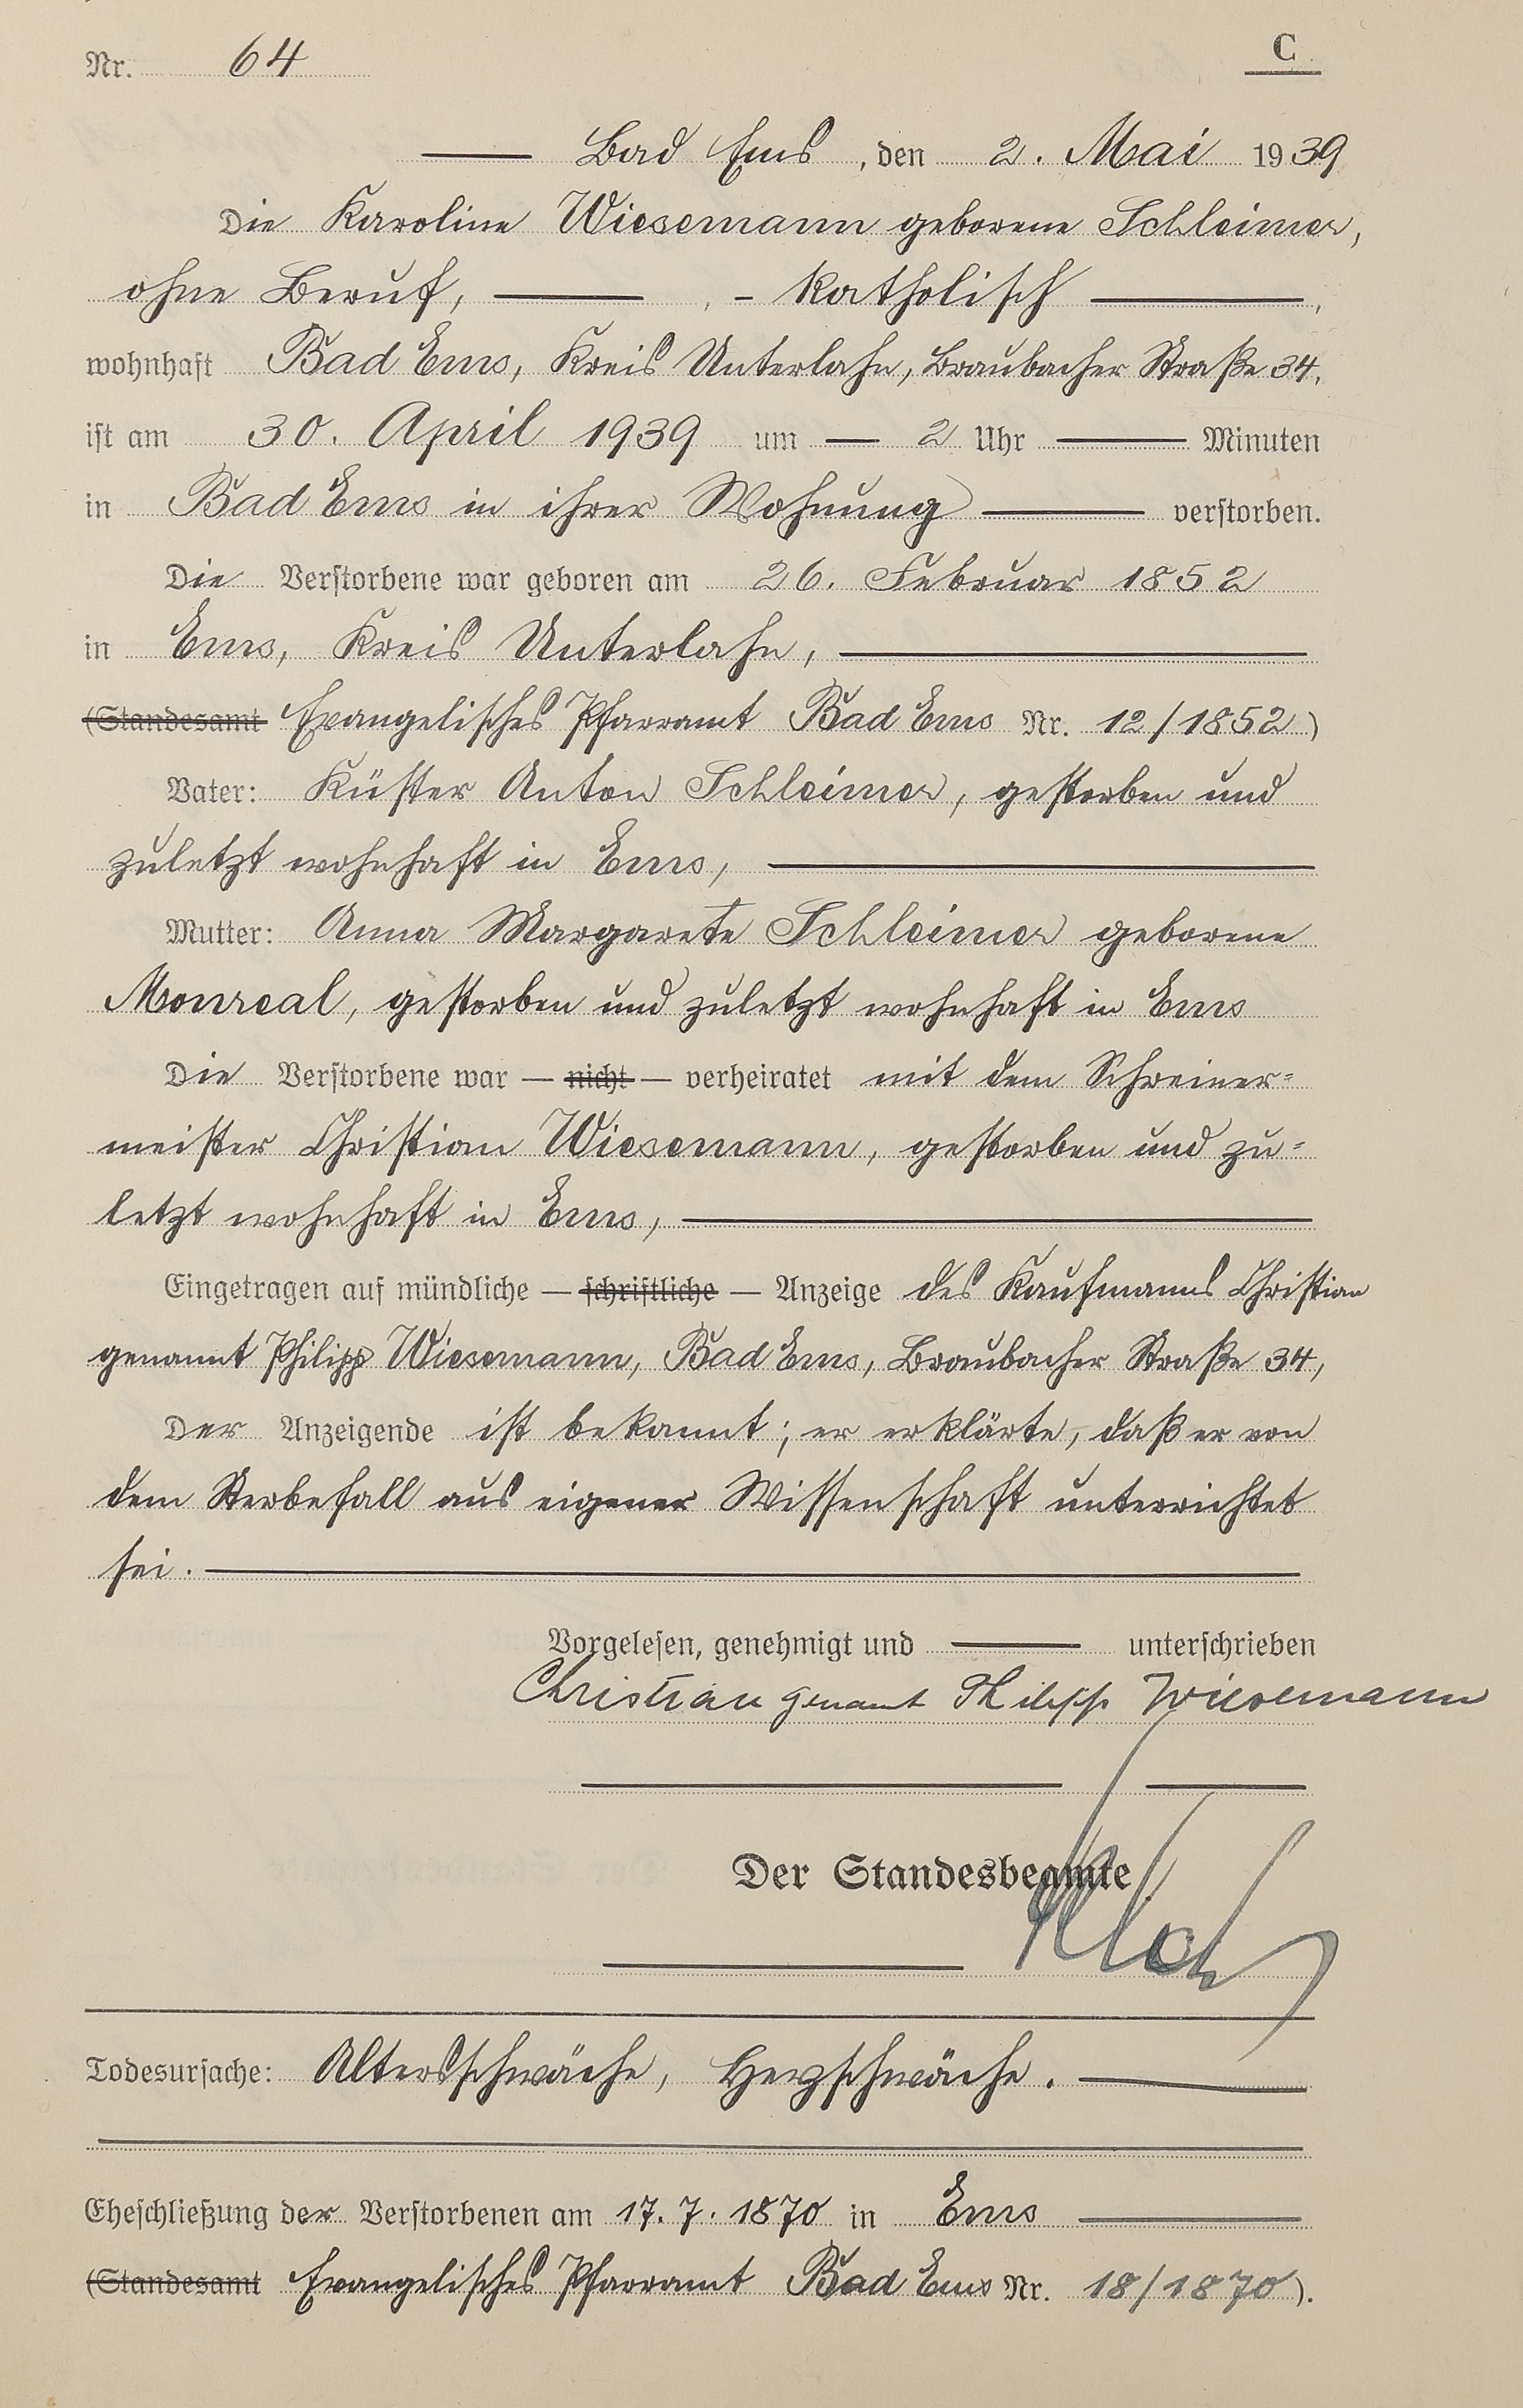 Nr. 64 C
Bad Ems, den 2. Mai 1939
Die Karoline Wiesemann geborene Schleimer,
ohne Beruf, — , - katholisch —,
wohnhaft Bad Ems, Kreis Unterlahn, Braubacher Straße 34,
ist am 30. April 1939 um — 2 Uhr — Minuten
in Bad Ems in ihrer Wohnung — verstorben.
Die Verstorbene war geboren am 26. Februar 1852
in Ems, Kreis Unterlahn, —
(Standesamt Evangelisches Pfarramt Bad Ems Nr. 12/1852)
Vater: Küster Anton Schleimer, gestorben und
zuletzt wohnhaft in Ems, —
Mutter: Anna Margarete Schleimer geborene
Monreal, gestorben und zuletzt wohnhaft in Ems
Die Verstorbene war — nicht — verheiratet mit dem Schreiner-
meister Christian Wiesemann, gestorben und zu-
letzt wohnhaft in Ems, —
Eingetragen auf mündliche — schriftliche — Anzeige des Kaufmanns Christian
genannt Philipp Wiesemann, Bad Ems, Braubacher Straße 34,
Der Anzeigende ist bekannt; er erklärte, daß er von
dem Sterbefall aus eigener Wissenschaft unterrichtet
sei. —
Vorgelesen, genehmigt und — unterschrieben
Christian genannt Philipp Wiesemann
Der Standesbeamte
Todesursache: Altersschwäche, Herzschwäche. —
Eheschließung der Verstorbenen am 17.7.1870 in Ems —
(Standesamt Evangelisches Pfarramt Bad Ems Nr. 18/1870).